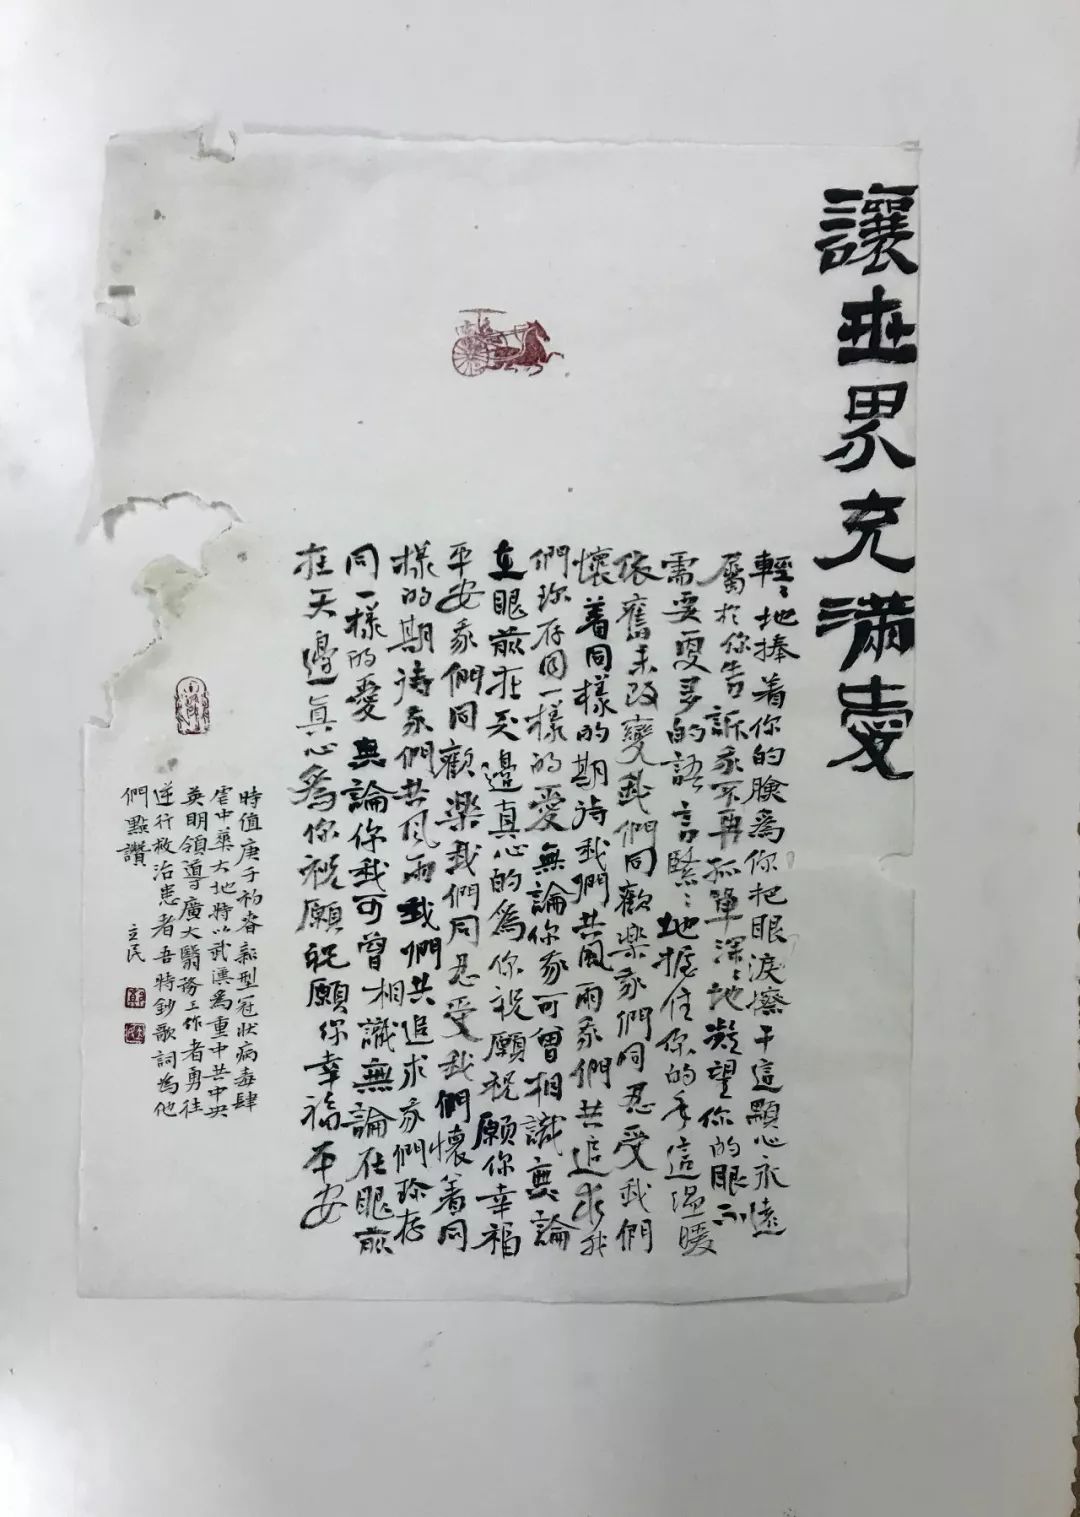 讓世界充滿愛
輕〻地捧着你的臉為你把眼淚擦干這顆心永遠
屬於你告訴我不再孤單深〻地凝望你的眼不
需要更多的語言緊〻地握住你的手這溫暖
依舊未改變我們同歡樂我們同忍受我們
懷着同樣的期待我們共風雨我們共追求我
們珍存同一樣的愛無論你我可曾相識無論
在眼前在天邊真心的為你祝願祝願你幸福
平安我們同歡樂我們同忍受我們懷着同
樣的期待我們共風雨我們共追求我們珍存
同一樣的愛無論你我可曾相識無論在眼前
在天邊真心為你祝願祝願你幸福平安
時值庚子初春新型冠狀病毒肆
虐中華大地特以武漢為重中共中央
英明領導廣大醫務工作者勇往
逆行救治患者吾特鈔歌詞為他
們點讚
立民